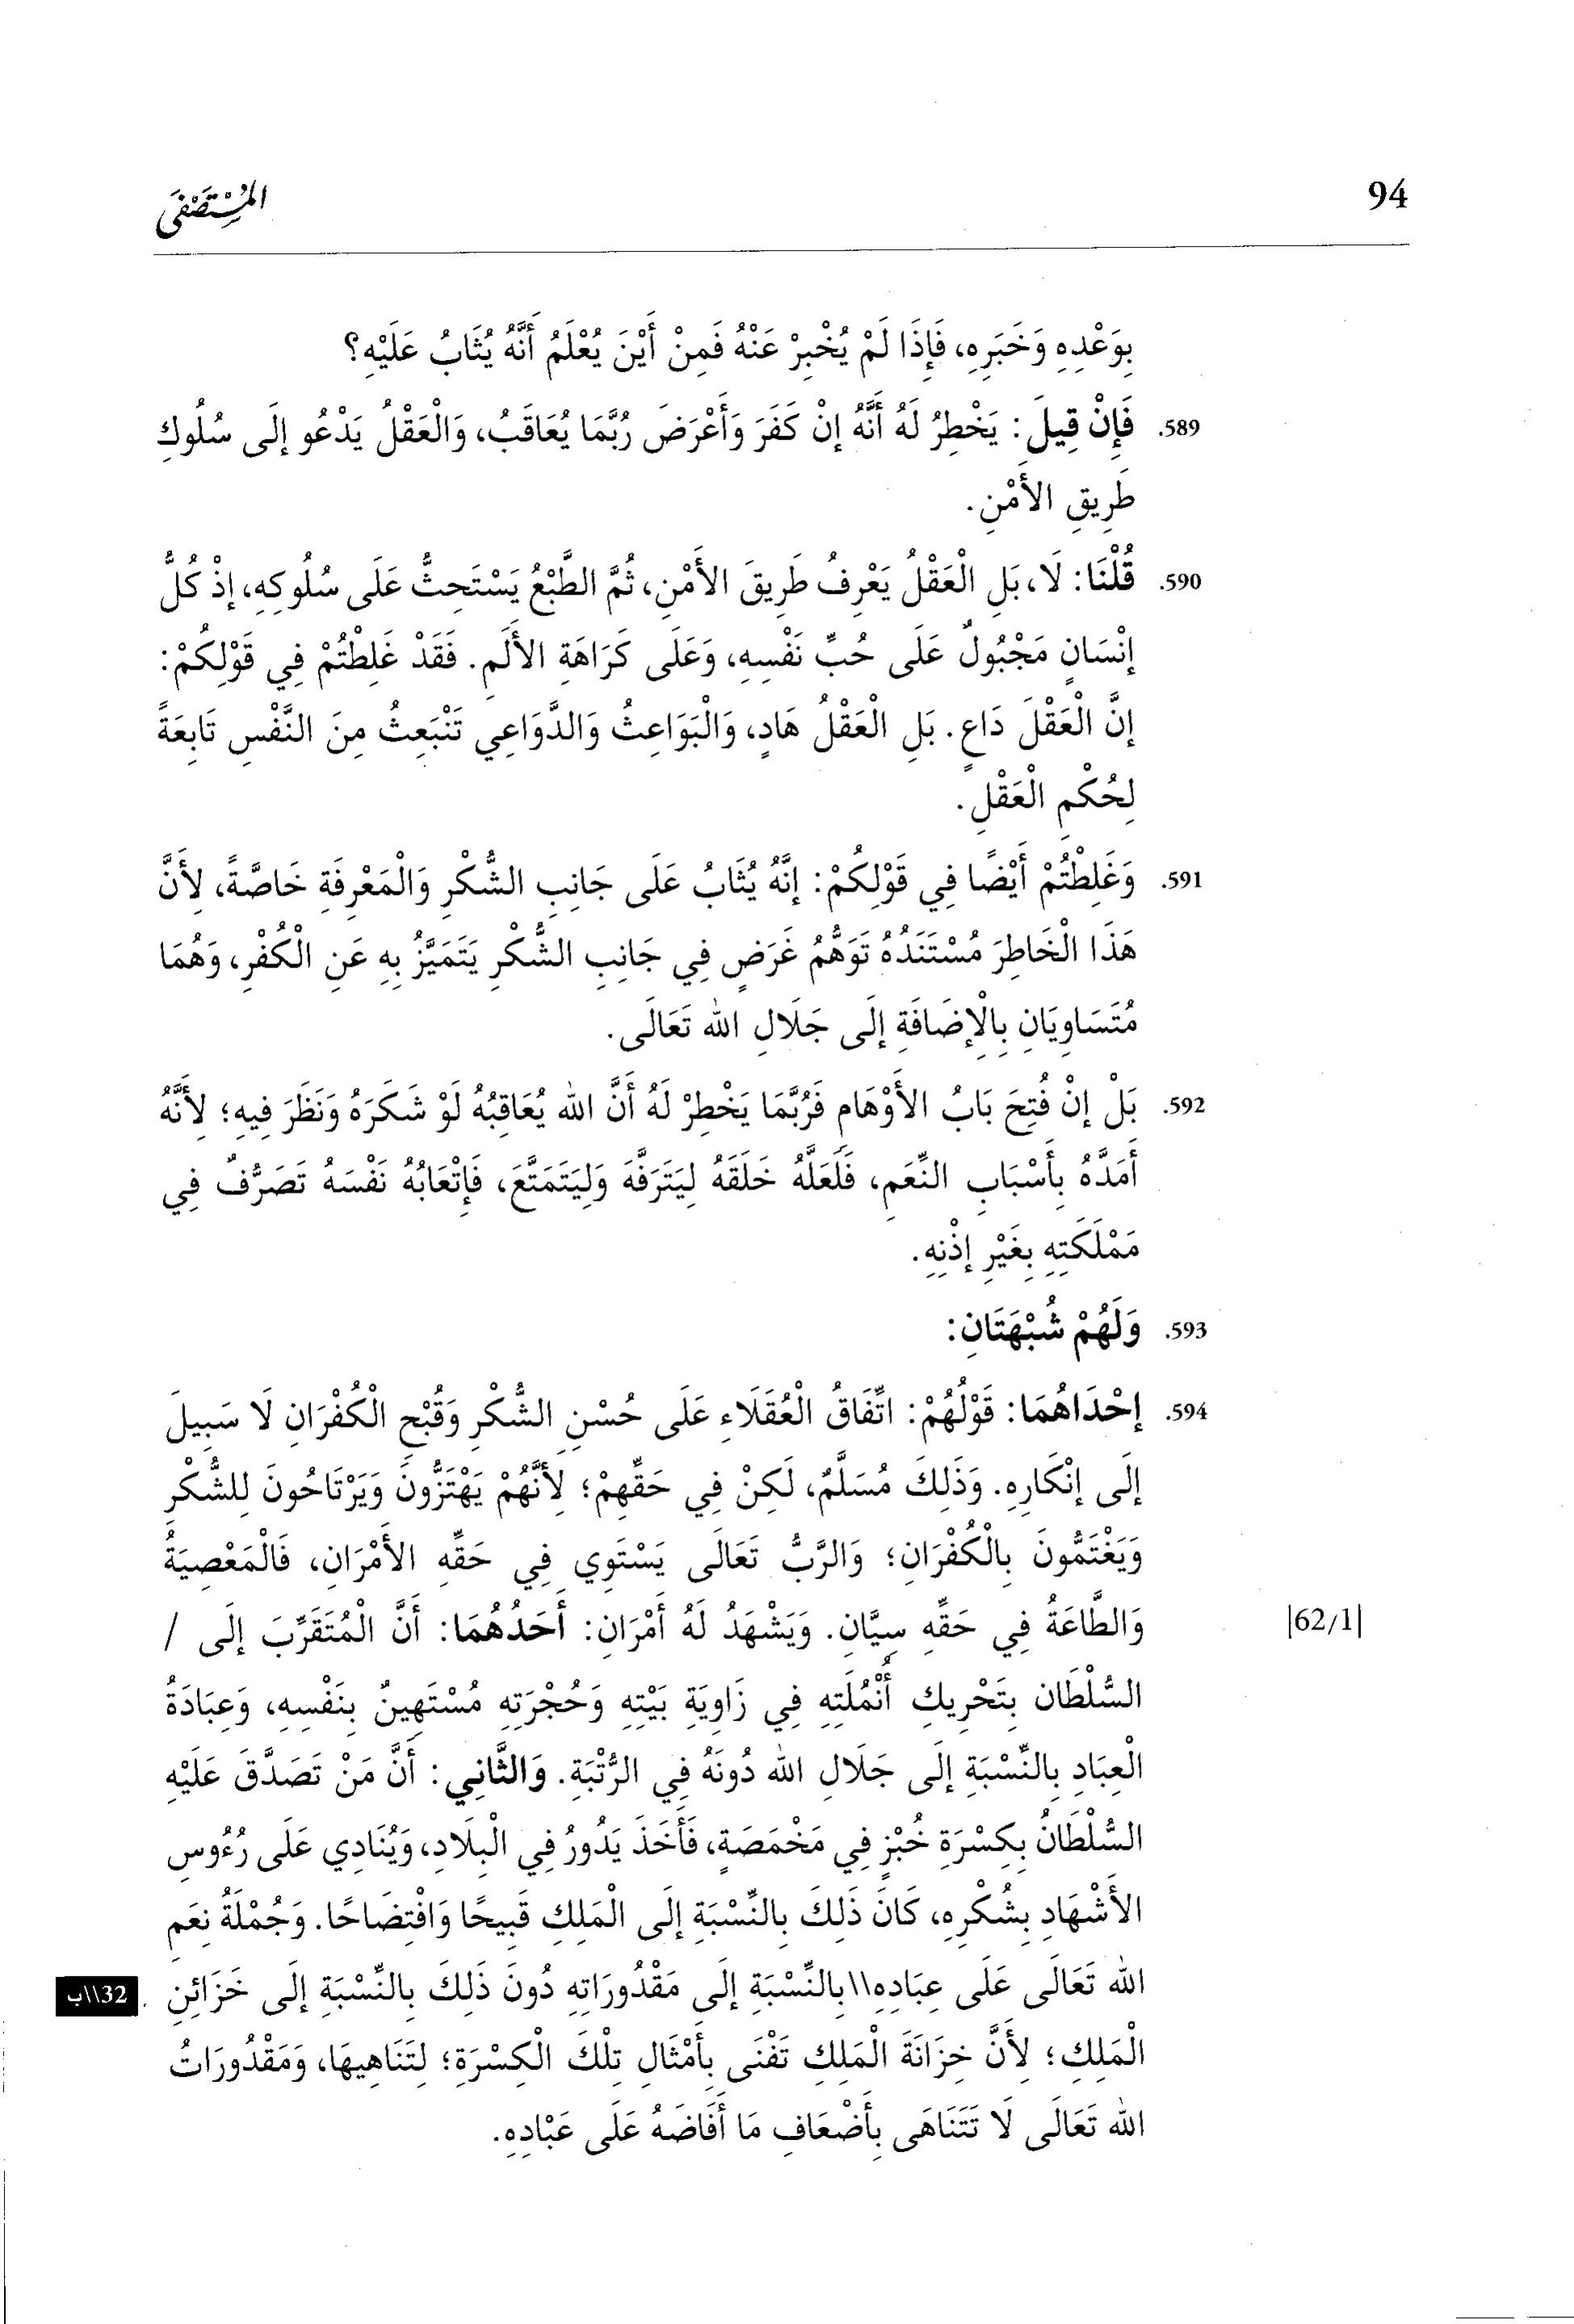 94
المُسْتَصْفَى
بِوَعْدِهِ وَخَبَرِهِ، فَإِذَا لَمْ يُخْبِرْ عَنْهُ فَمِنْ أَيْنَ يُعْلَمُ أَنَّهُ يُثَابُ عَلَيْهِ؟
589. فَإِنْ قِيلَ: يَخْطِرُ لَهُ أَنَّهُ إِنْ كَفَرَ وَأَعْرَضَ رُبَّمَا يُعَاقَبُ، وَالْعَقْلُ يَدْعُو إِلَى سُلُوكِ
طَرِيقِ الأَمْنِ.
590. قُلْنَا: لَا، بَلِ الْعَقْلُ يَعْرِفُ طَرِيقَ الأَمْنِ، ثُمَّ الطَّبْعُ يَسْتَحِثُّ عَلَى سُلُوكِهِ، إِذْ كُلُّ
إِنْسَانٍ مَجْبُولٌ عَلَى حُبِّ نَفْسِهِ، وَعَلَى كَرَاهَةِ الأَلَمِ. فَقَدْ غَلِطْتُمْ فِي قَوْلِكُمْ:
إِنَّ الْعَقْلَ دَاعٍ. بَلِ الْعَقْلُ هَادٍ، وَالْبَوَاعِثُ وَالدَّوَاعِي تَنْبَعِثُ مِنَ النَّفْسِ تَابِعَةً
لِحُكْمِ الْعَقْلِ.
591. وَغَلِطْتُمْ أَيْضًا فِي قَوْلِكُمْ: إِنَّهُ يُثَابُ عَلَى جَانِبِ الشُّكْرِ وَالْمَعْرِفَةِ خَاصَّةً، لِأَنَّ
هَذَا الْخَاطِرَ مُسْتَنَدُهُ تَوَهُّمُ غَرَضٍ فِي جَانِبِ الشُّكْرِ يَتَمَيَّزُ بِهِ عَنِ الْكُفْرِ، وَهُمَا
مُتَسَاوِيَانِ بِالْإِضَافَةِ إِلَى جَلَالِ الله تَعَالَى.
592. بَلْ إِنْ فُتِحَ بَابُ الأَوْهَامِ فَرُبَّمَا يَخْطِرُ لَهُ أَنَّ الله يُعَاقِبُهُ لَوْ شَكَرَهُ وَنَظَرَ فِيهِ؛ لِأَنَّهُ
أَمَدَّهُ بِأَسْبَابِ النِّعَمِ، فَلَعَلَّهُ خَلَقَهُ لِيَتَرَفَّهَ وَلِيَتَمَتَّعَ، فَإِتْعَابُهُ نَفْسَهُ تَصَرُّفٌ فِي
مَمْلَكَتِهِ بِغَيْرِ إِذْنِهِ.
593. وَلَهُمْ شُبْهَتَانِ:
594. إِحْدَاهُمَا: قَوْلُهُمْ: اتِّفَاقُ الْعُقَلَاءِ عَلَى حُسْنِ الشُّكْرِ وَقُبْحِ الْكُفْرَانِ لَا سَبِيلَ
إِلَى إِنْكَارِهِ. وَذَلِكَ مُسَلَّمٌ، لَكِنْ فِي حَقِّهِمْ؛ لِأَنَّهُمْ يَهْتَزُّونَ وَيَرْتَاحُونَ لِلشُّكْرِ
وَيَغْتَمُّونَ بِالْكُفْرَانِ؛ وَالرَّبُّ تَعَالَى يَسْتَوِي فِي حَقِّهِ الأَمْرَانِ، فَالْمَعْصِيَةُ
وَالطَّاعَةُ فِي حَقِّهِ سِيَّانِ. وَيَشْهَدُ لَهُ أَمْرَانِ: أَحَدُهُمَا: أَنَّ الْمُتَقَرِّبَ إِلَى /
|62/1|
السُّلْطَانِ بِتَحْرِيكِ أُنْمُلَتِهِ فِي زَاوِيَةِ بَيْتِهِ وَحُجْرَتِهِ مُسْتَهِينٌ بِنَفْسِهِ، وَعِبَادَةُ
الْعِبَادِ بِالنِّسْبَةِ إِلَى جَلَالِ الله دُونَهُ فِي الرُّتْبَةِ. وَالثَّانِي: أَنَّ مَنْ تَصَدَّقَ عَلَيْهِ
السُّلْطَانُ بِكِسْرَةِ خُبْزٍ فِي مَخْمَصَةٍ، فَأَخَذَ يَدُورُ فِي الْبِلَادِ، وَيُنَادِي عَلَى رُءُوسِ
الأَشْهَادِ بِشُكْرِهِ، كَانَ ذَلِكَ بِالنِّسْبَةِ إِلَى الْمَلِكِ قَبِيحًا وَافْتِضَاحًا. وَجُمْلَةُ نِعَمِ
الله تَعَالَى عَلَى عِبَادِهِ\\بِالنِّسْبَةِ إِلَى مَقْدُورَاتِهِ دُونَ ذَلِكَ بِالنِّسْبَةِ إِلَى خَزَائِنِ
32\\ب
الْمَلِكِ؛ لِأَنَّ خِزَانَةَ الْمَلِكِ تَفْنَى بِأَمْثَالِ تِلْكَ الْكِسْرَةِ؛ لِتَنَاهِيهَا، وَمَقْدُورَاتُ
الله تَعَالَى لَا تَتَنَاهَى بِأَضْعَافِ مَا أَفَاضَهُ عَلَى عَبْادِهِ.